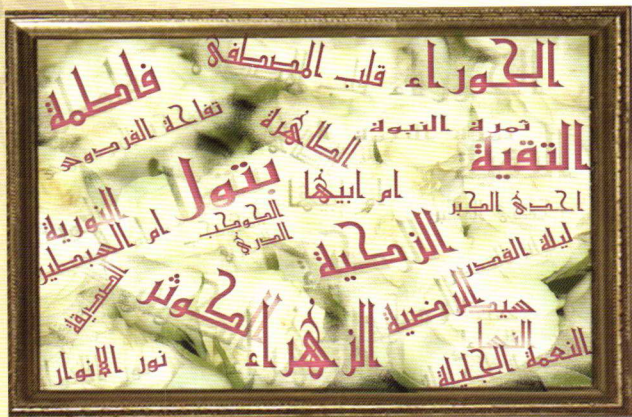 الحوراء
قلب المصطفى
فاطمة
ثمرة النبوة
تفاحة الفردوس
الطاهرة
التقية
بتول
ام ابيها
احدى الكبر
النورية
الكوكب
الدري
ام السبطين
الزكية
ليلة القدر
الصديقة
الكوثر
الرضية
سيدة
النساء
الزهراء
النعمة الجليلة
نور الانوار